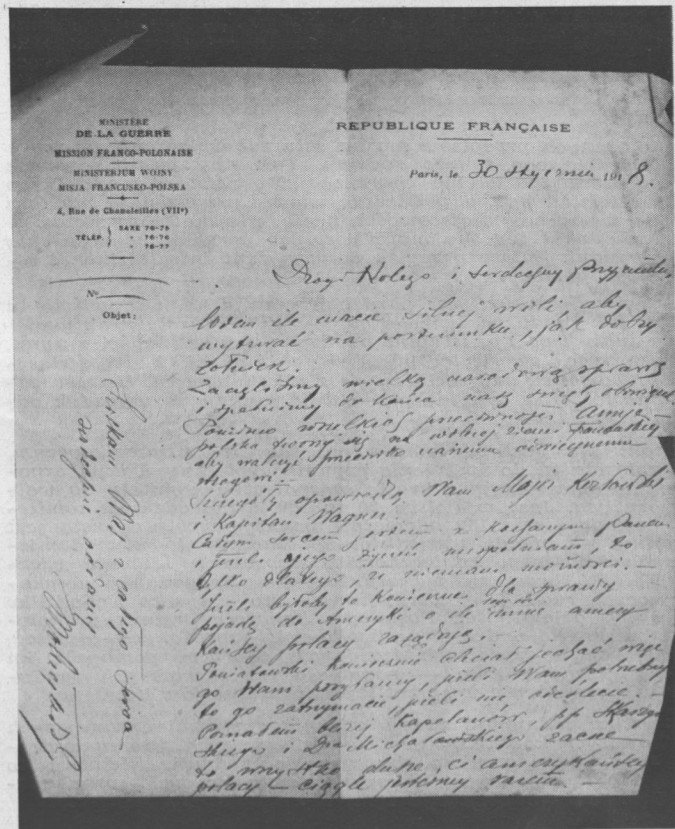 MINISTÈRE
DE LA GUERRE
MISSION FRANCO-POLONAISE
MINISTERJUM WOJNY
MISJA FRANCUSKO-POLSKA
4, Rue de Chanaleilles (VIIe)
TÉLÉP. SAXE 76-75
" 76-76
" 76-77
No
Objet:
REPUBLIQUE FRANÇAISE
Paris, le 30 Stycznia 1918.
Drogi Kolego i serdeczny Przyjacielu,
wiem ile macie silnej woli aby
wytrwać na posterunku, jak dobry
żołnierz.
Zaczęliśmy wielką narodową sprawę
i spełnimy do końca nasz święty obowiązek
Pomimo wszelkich przeciwności Armja
polska tworzy się na wolnej ziemi francuskiej
aby walczyć przeciwko naszemu
wrogowi.—
Szczegóły opowiedzą Wam Major Kozłowski
i Kapitan Wagner.
Całym sercem jestem z kochanym Panem
i jeśli jego życzeń niespełniam, to
tylko dlatego, że niemam możności.—
Jeśli byłoby to konieczne dla sprawy
pojadę do Ameryki o ile amery
kańscy polacy zażądają.—
Poniatowski koniecznie chciał jechać więc
go Wam posyłamy, jeśli Wam potrzebny
to go zatrzymacie, jeśli nie odeślecie.—
Poznałem bliżej kapelanów, pp
i Dra Michałowskiego zacne
to wszystko duże, ci amerykańscy
polacy — ciągle jesteśmy razem —
Ściskam Was z całego serca
serdecznie oddany